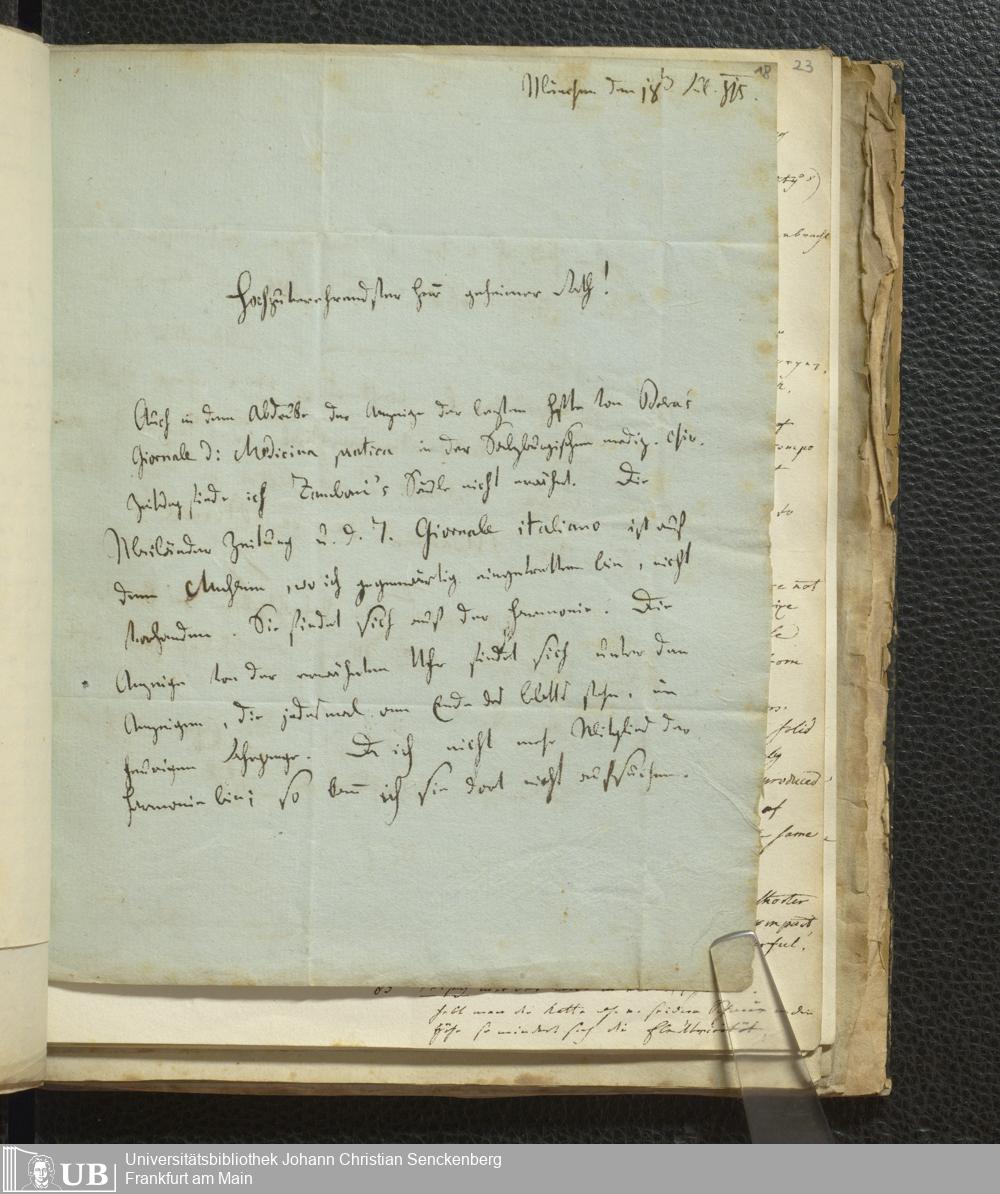 18 23
München den 18t Jul. 815.
Hochzuverehrendster Herr geheimer Rath!
Auch in dem Abdrucke der Anzeige der letzten Hefte von Breras
Giornale di Medicina pratica in der Salzburgischen mediz. chir.
Zeitung finde ich Zamboni's Säule nicht erwähnt. Die
Mailänder Zeitung u. d. T. Giornale italiano ist auf
dem Museum, wo ich gegenwärtig eingetretten bin, nicht
vorhanden. Sie findet sich auf der Harmonie. Die
Anzeige von der erwähnten Uhr findet sich unter den
Anzeigen, die jedesmal am Ende des Blatts stehn, im
heurigen Jahrgange. Da ich nicht mehr Mitglied der
Harmonie bin; so kann ich sie dort nicht aufsuchen.
not
from
solid
produced
of
same
compact
halt man die Kette an seidene Schnür in die
Höhe so mindert sich die Elecktricität
UB Universitätsbibliothek Johann Christian Senckenberg
Frankfurt am Main